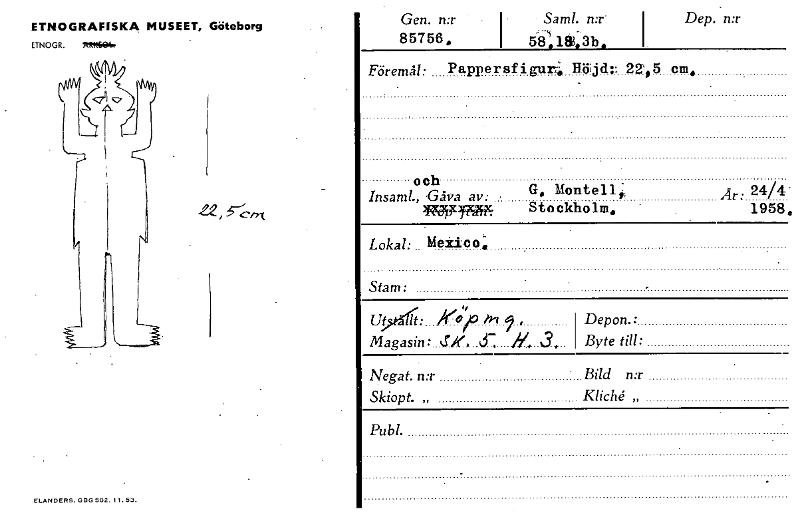 ETNOGRAFISKA MUSEET, Göteborg
ETNOGR. ARKEOL.
22,5 cm
ELANDERS, GBG 502. 11. 53.
Gen. n:r Saml. n:r Dep. n:r
85756. 58.18.3b.
Föremål: Pappersfigur. Höjd: 22,5 cm.
och
Insaml., Gåva av: G. Montell, År: 24/4
Köp från: Stockholm. 1958.
Lokal: Mexico.
Stam:
Utställt: Köpmg. Depon.:
Magasin: SK. 5. H. 3. Byte till:
Negat. n:r Bild n:r
Skiopt. „ Kliché „
Publ.